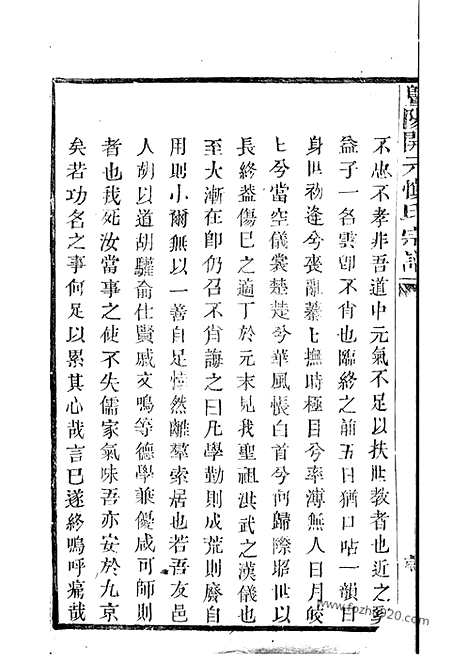 暨陽開元慎氏宗譜
不忠不孝非吾道中元氣不足以扶世教者也近之
益子一名雲卽不肖也臨終之前五日猶口呫一韻曰
身世初逢兮喪亂蓁七撫時極目兮率薄無人日月皎
七兮當空儀裳楚楚兮華風悵白首兮何歸際堦世以
長終葢傷巳之適丁於元末見我聖祖洪武之漢儀也
至大漸在卽仍召不肖誨之曰凡學勤則成荒則廢自
用則小爾無以一善自足恃然離羣索居也若吾友邑
人胡以道胡驥俞仕賢戚文鳴等德學兼優咸可師則
者也我死汝當事之使不失儒家氣味吾亦安於九京
矣若功名之事何足以累其心哉言巳遂終嗚呼痛哉
www.fozhu920.com